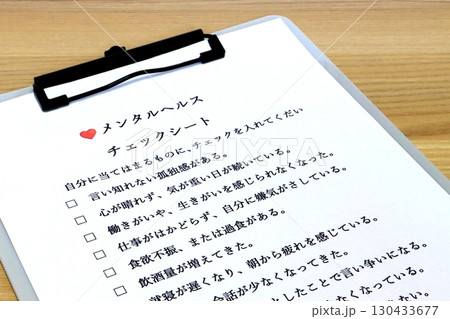 メンタルヘルス
チェックシート
自分に当てはまるものに、チェックを入れてくだい
□ 言い知れない孤独感がある。
□ 心が晴れず、気が重い日が続いている。
□ 働きがいや、生きがいを感じられなくなった。
□ 仕事がはかどらず、自分に嫌気がさしている。
□ 食欲不振、または過食がある。
□ 飲酒量が増えてきた。
就寝が遅くなり、朝から疲れを感じている。
会話が少なくなってきた。
としたことで言い争いになる。
なくなっている。
130433677